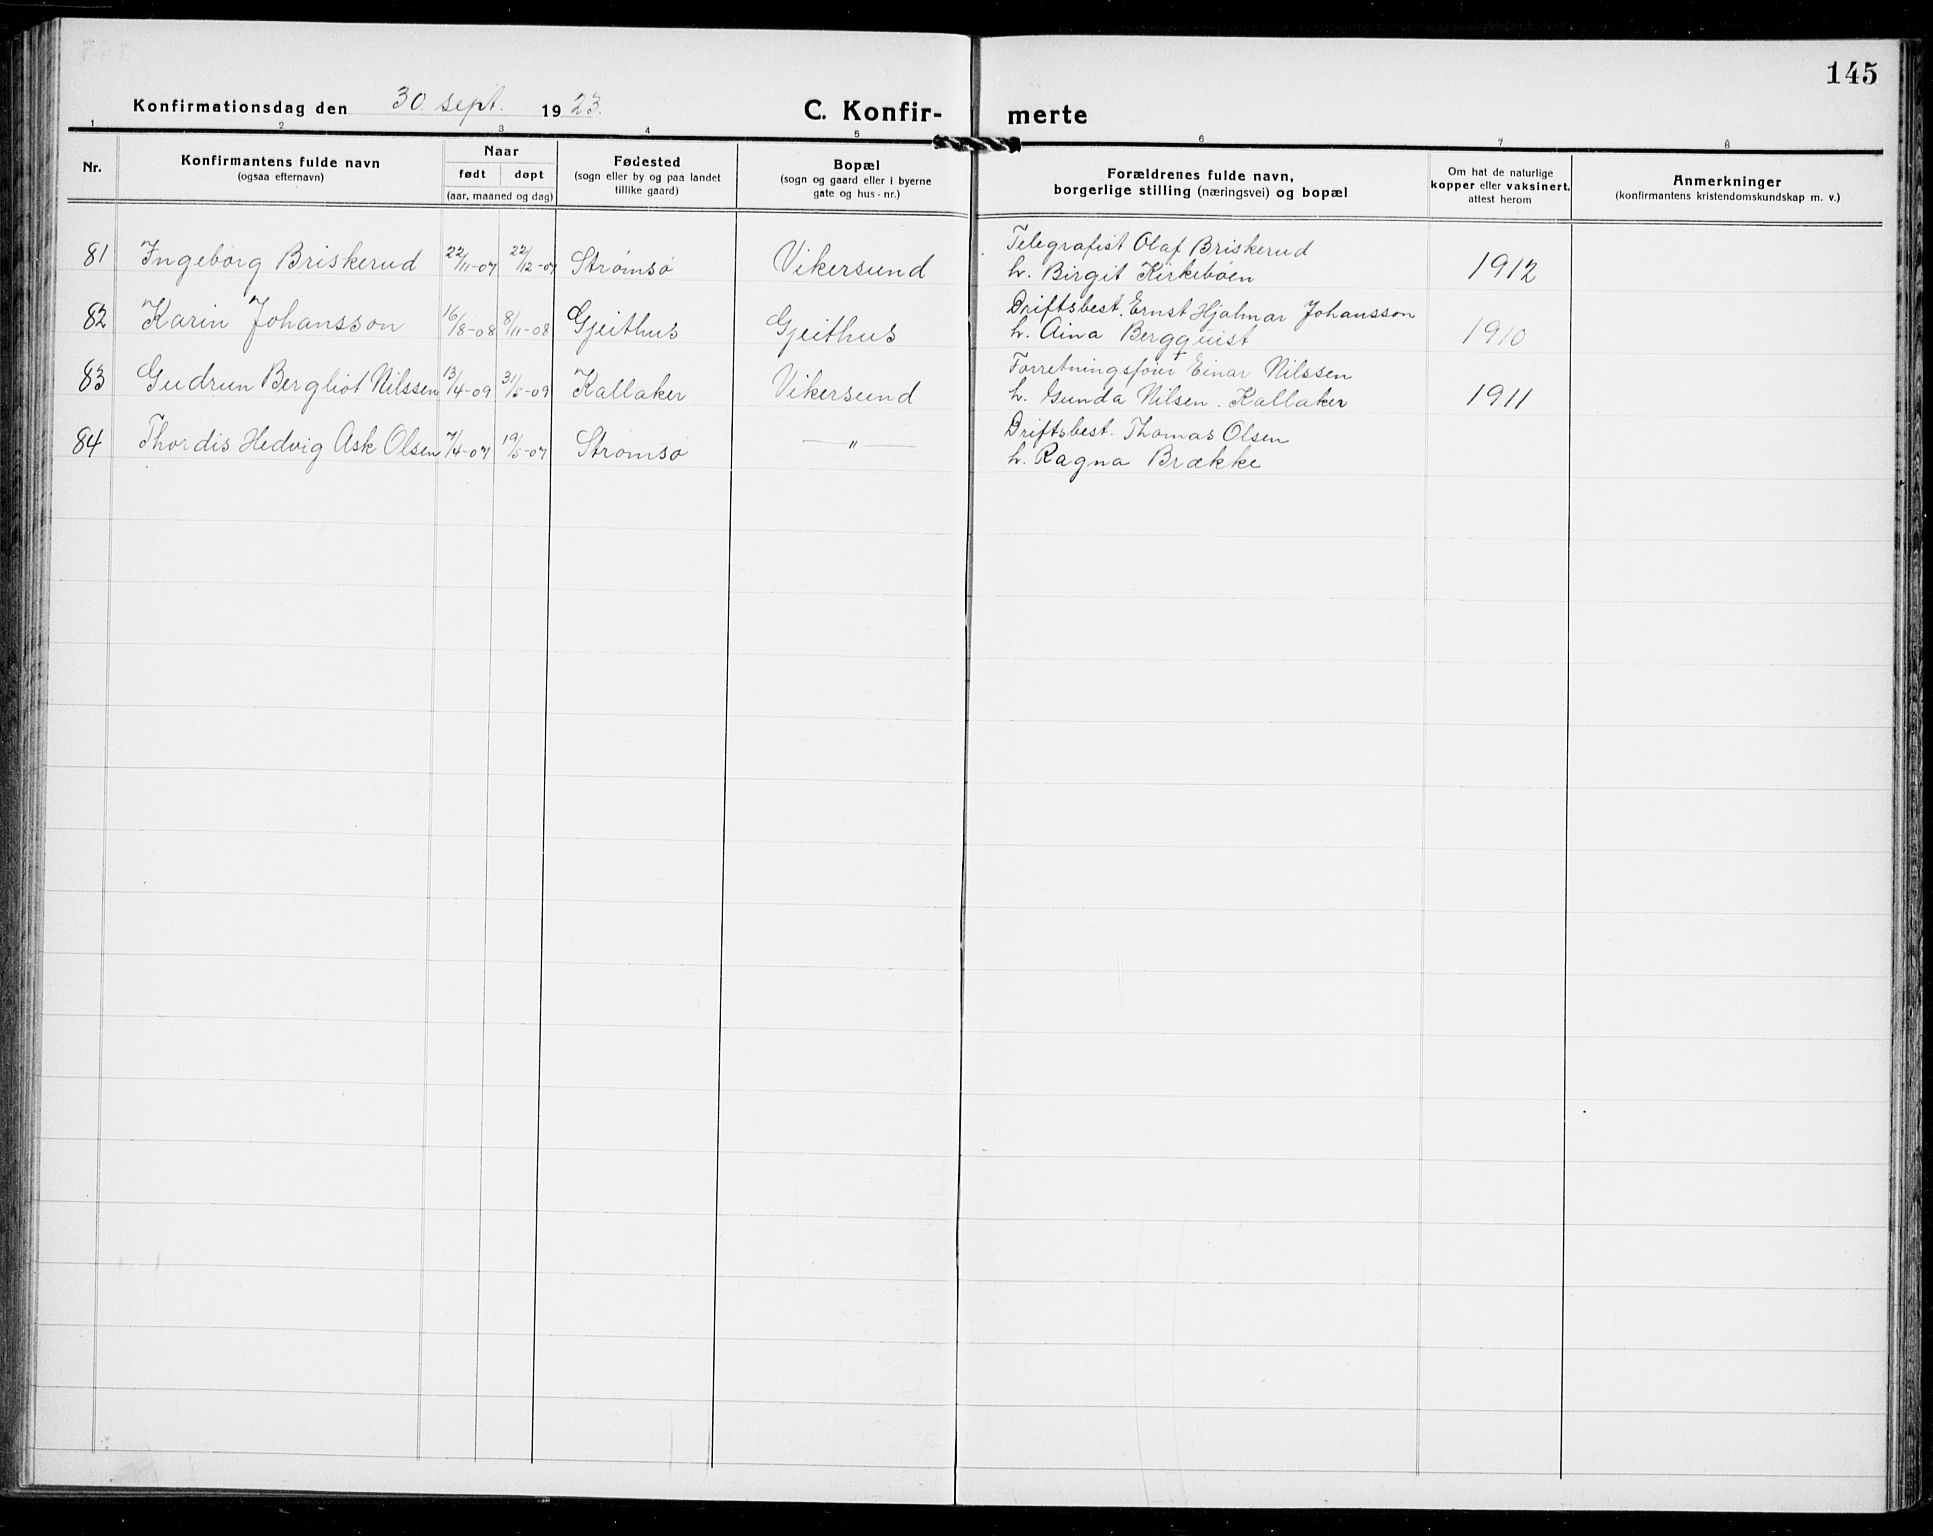 145
Konfirmationsdag den 30. sept. 1923.
C. Konfir- merte
1 2 3 4 5 6 7 8
Nr.
Konfirmantens fulde navn
(ogsaa efternavn)
Naar
født døpt
(aar, maaned og dag)
Fødested
(sogn eller by og paa landet
tillike gaard)
Bopæl
(sogn og gaard eller i byerne
gate og hus - nr.)
Forældrenes fulde navn,
borgerlige stilling (næringsvei) og bopæl
Om hat de naturlige
kopper eller vaksinert,
attest herom
Anmerkninger
(konfirmantens kristendomskundskap m. v.)
81 Ingeborg Briskerud 22/11-07 22/12-07 Strømsø Vikersund Telegrafist Olaf Briskerud
h. Birgit Kirkebøen 1912
82 Karin Johansson 16/8-08 8/11-08 Gjeithus Gjeithus Driftsbest. Ernst Hjalmar Johansson
h. Aina Bergquist 1910
83 Gudrun Bergliot Nilssen 13/4-09 31/5-09 Kallaker Vikersund Forretningsfører Einar Nilssen
h. Gunda Nilsen. Kallaker 1911
84 Thordis Hedvig Ask Olsen 7/4-07 19/5-07 Strømsø — " — Driftsbest. Thomas Olsen
h. Ragna Brække